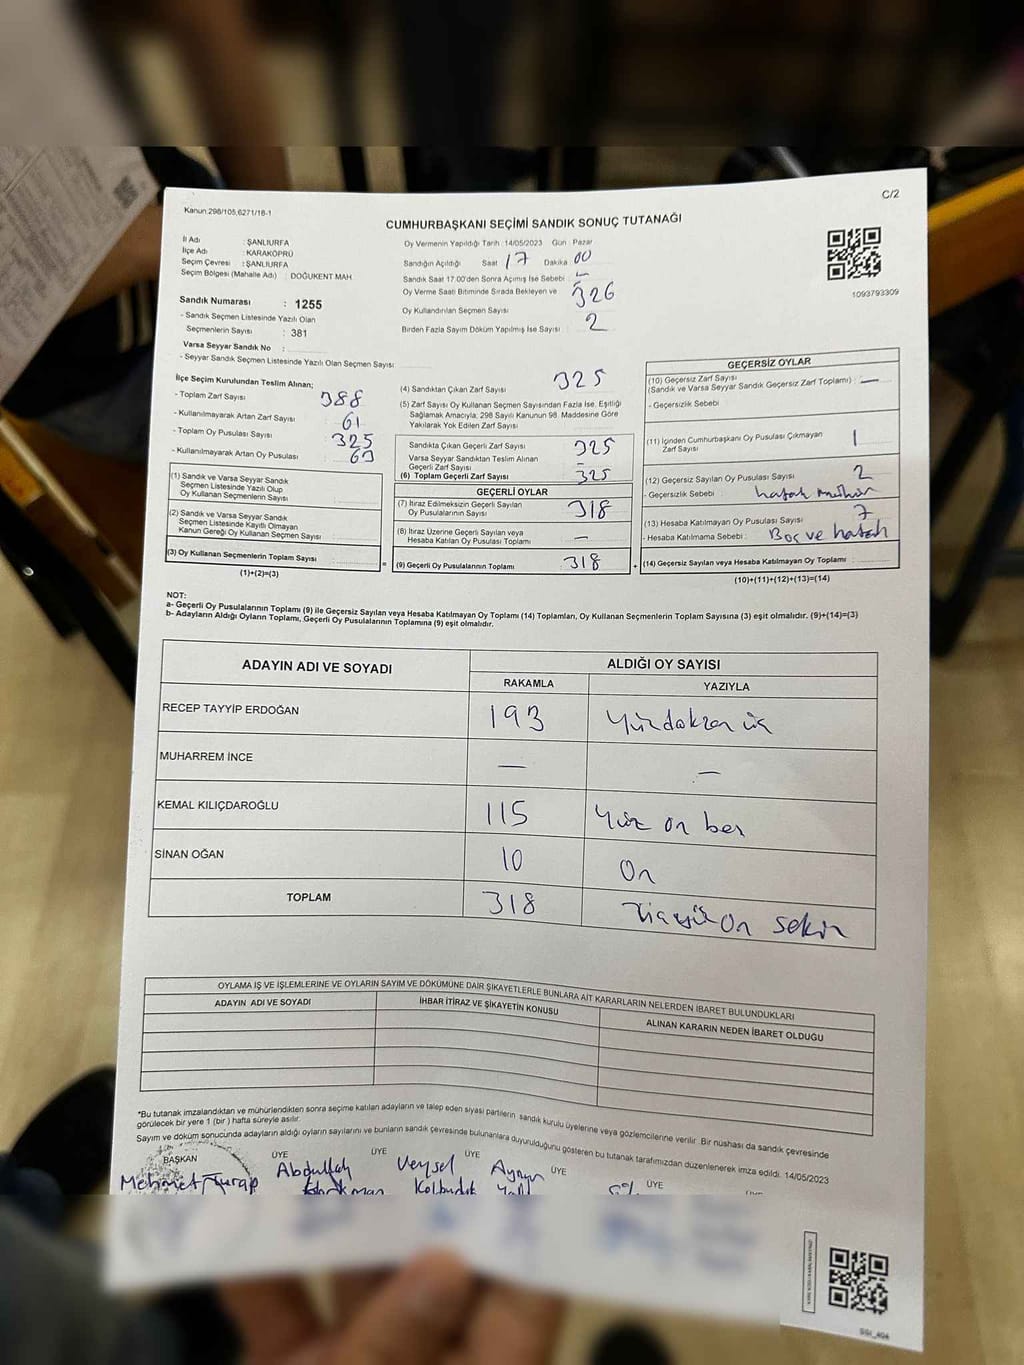 C/2
Kanun.298/105,6271/16-1
CUMHURBAŞKANI SEÇİMİ SANDIK SONUÇ TUTANAĞI
İl Adı : ŞANLIURFA
İlçe Adı : KARAKÖPRÜ
Seçim Çevresi : ŞANLIURFA
Seçim Bölgesi (Mahalle Adı) : DOĞUKENT MAH.
Sandık Numarası : 1255
- Sandık Seçmen Listesinde Yazılı Olan
Seçmenlerin Sayısı : 381
Varsa Seyyar Sandık No :
- Seyyar Sandık Seçmen Listesinde Yazılı Olan Seçmen Sayısı:
Oy Vermenin Yapıldığı Tarih : 14/05/2023 Gün : Pazar
Sandığın Açıldığı Saat 17 Dakika 00
Sandık Saat 17.00'den Sonra Açımış İse Sebebi : -
Oy Verme Saati Bitiminde Sırada Bekleyen ve
Oy Kullandırılan Seçmen Sayısı 326
Birden Fazla Sayım Döküm Yapılmış İse Sayısı : 2
1093793309
İlçe Seçim Kurulundan Teslim Alınan;
- Toplam Zarf Sayısı : 388
- Kullanılmayarak Artan Zarf Sayısı : 61
- Toplam Oy Pusulası Sayısı : 325
- Kullanılmayarak Artan Oy Pusulası : 63
(1) Sandık ve Varsa Seyyar Sandık
Seçmen Listesinde Yazılı Olup
Oy Kullanan Seçmenlerin Sayısı :
(2) Sandık ve Varsa Seyyar Sandık
Seçmen Listesinde Kayıtlı Olmayan
Kanun Gereği Oy Kullanan Seçmen Sayısı :
(3) Oy Kullanan Seçmenlerin Toplam Sayısı :
(1)+(2)=(3)
(4) Sandıktan Çıkan Zarf Sayısı : 325
(5) Zarf Sayısı Oy Kullanan Seçmen Sayısından Fazla İse, Eşitliği
Sağlamak Amacıyla; 298 Sayılı Kanunun 98. Maddesine Göre
Yakılarak Yok Edilen Zarf Sayısı :
Sandıkta Çıkan Geçerli Zarf Sayısı : 325
Varsa Seyyar Sandıktan Teslim Alınan
Geçerli Zarf Sayısı : -
(6) Toplam Geçerli Zarf Sayısı : 325
GEÇERLİ OYLAR
(7) İtiraz Edilmeksizin Geçerli Sayılan
Oy Pusulalarının Sayısı : 318
(8) İtiraz Üzerine Geçerli Sayılan veya
Hesaba Katılan Oy Pusulası Toplamı : —
(9) Geçerli Oy Pusulalarının Toplamı : 318
GEÇERSİZ OYLAR
(10) Geçersiz Zarf Sayısı
(Sandık ve Varsa Seyyar Sandık Geçersiz Zarf Toplamı) : —
- Geçersizlik Sebebi :
(11) İçinden Cumhurbaşkanı Oy Pusulası Çıkmayan
Zarf Sayısı : 1
(12) Geçersiz Sayılan Oy Pusulası Sayısı : 2
- Geçersizlik Sebebi : hatalı mühür
(13) Hesaba Katılmayan Oy Pusulası Sayısı : 7
- Hesaba Katılmama Sebebi : Boş ve hatalı
(14) Geçersiz Sayılan veya Hesaba Katılmayan Oy Toplamı :
(10)+(11)+(12)+(13)=(14)
NOT:
a- Geçerli Oy Pusulalarının Toplamı (9) ile Geçersiz Sayılan veya Hesaba Katılmayan Oy Toplamı (14) Toplamları, Oy Kullanan Seçmenlerin Toplam Sayısına (3) eşit olmalıdır. (9)+(14)=(3)
b- Adayların Aldığı Oyların Toplamı, Geçerli Oy Pusulalarının Toplamına (9) eşit olmalıdır.
ADAYIN ADI VE SOYADI
ALDIĞI OY SAYISI
RAKAMLA YAZIYLA
RECEP TAYYİP ERDOĞAN 193 Yüzdoksan üç
MUHARREM İNCE — —
KEMAL KILIÇDAROĞLU 115 Yüz on beş
SİNAN OĞAN 10 On
TOPLAM 318 On sekiz
OYLAMA İŞ VE İŞLEMLERİNE VE OYLARIN SAYIM VE DÖKÜMÜNE DAİR ŞİKAYETLERLE BUNLARA AİT KARARLARIN NELERDEN İBARET BULUNDUKLARI
ADAYIN ADI VE SOYADI
İHBAR İTİRAZ VE ŞİKAYETİN KONUSU
ALINAN KARARIN NEDEN İBARET OLDUĞU
*Bu tutanak imzalandıktan ve mühürlendikten sonra seçime katılan adayların ve talep eden siyasi partilerin sandık kurulu üyelerine veya gözlemcilerine verilir. Bir nüshası da sandık çevresinde
görülecek bir yere 1 (bir ) hafta süreyle asılır.
Sayım ve döküm sonucunda adayların aldığı oyların sayılarını ve bunların sandık çevresinde bulunanlara duyurulduğunu gösteren bu tutanak tarafımızdan düzenlenerek imza edildi. 14/05/2023
BAŞKAN ÜYE ÜYE ÜYE ÜYE ÜYE
Mehmet Turap Abdullah Veysel